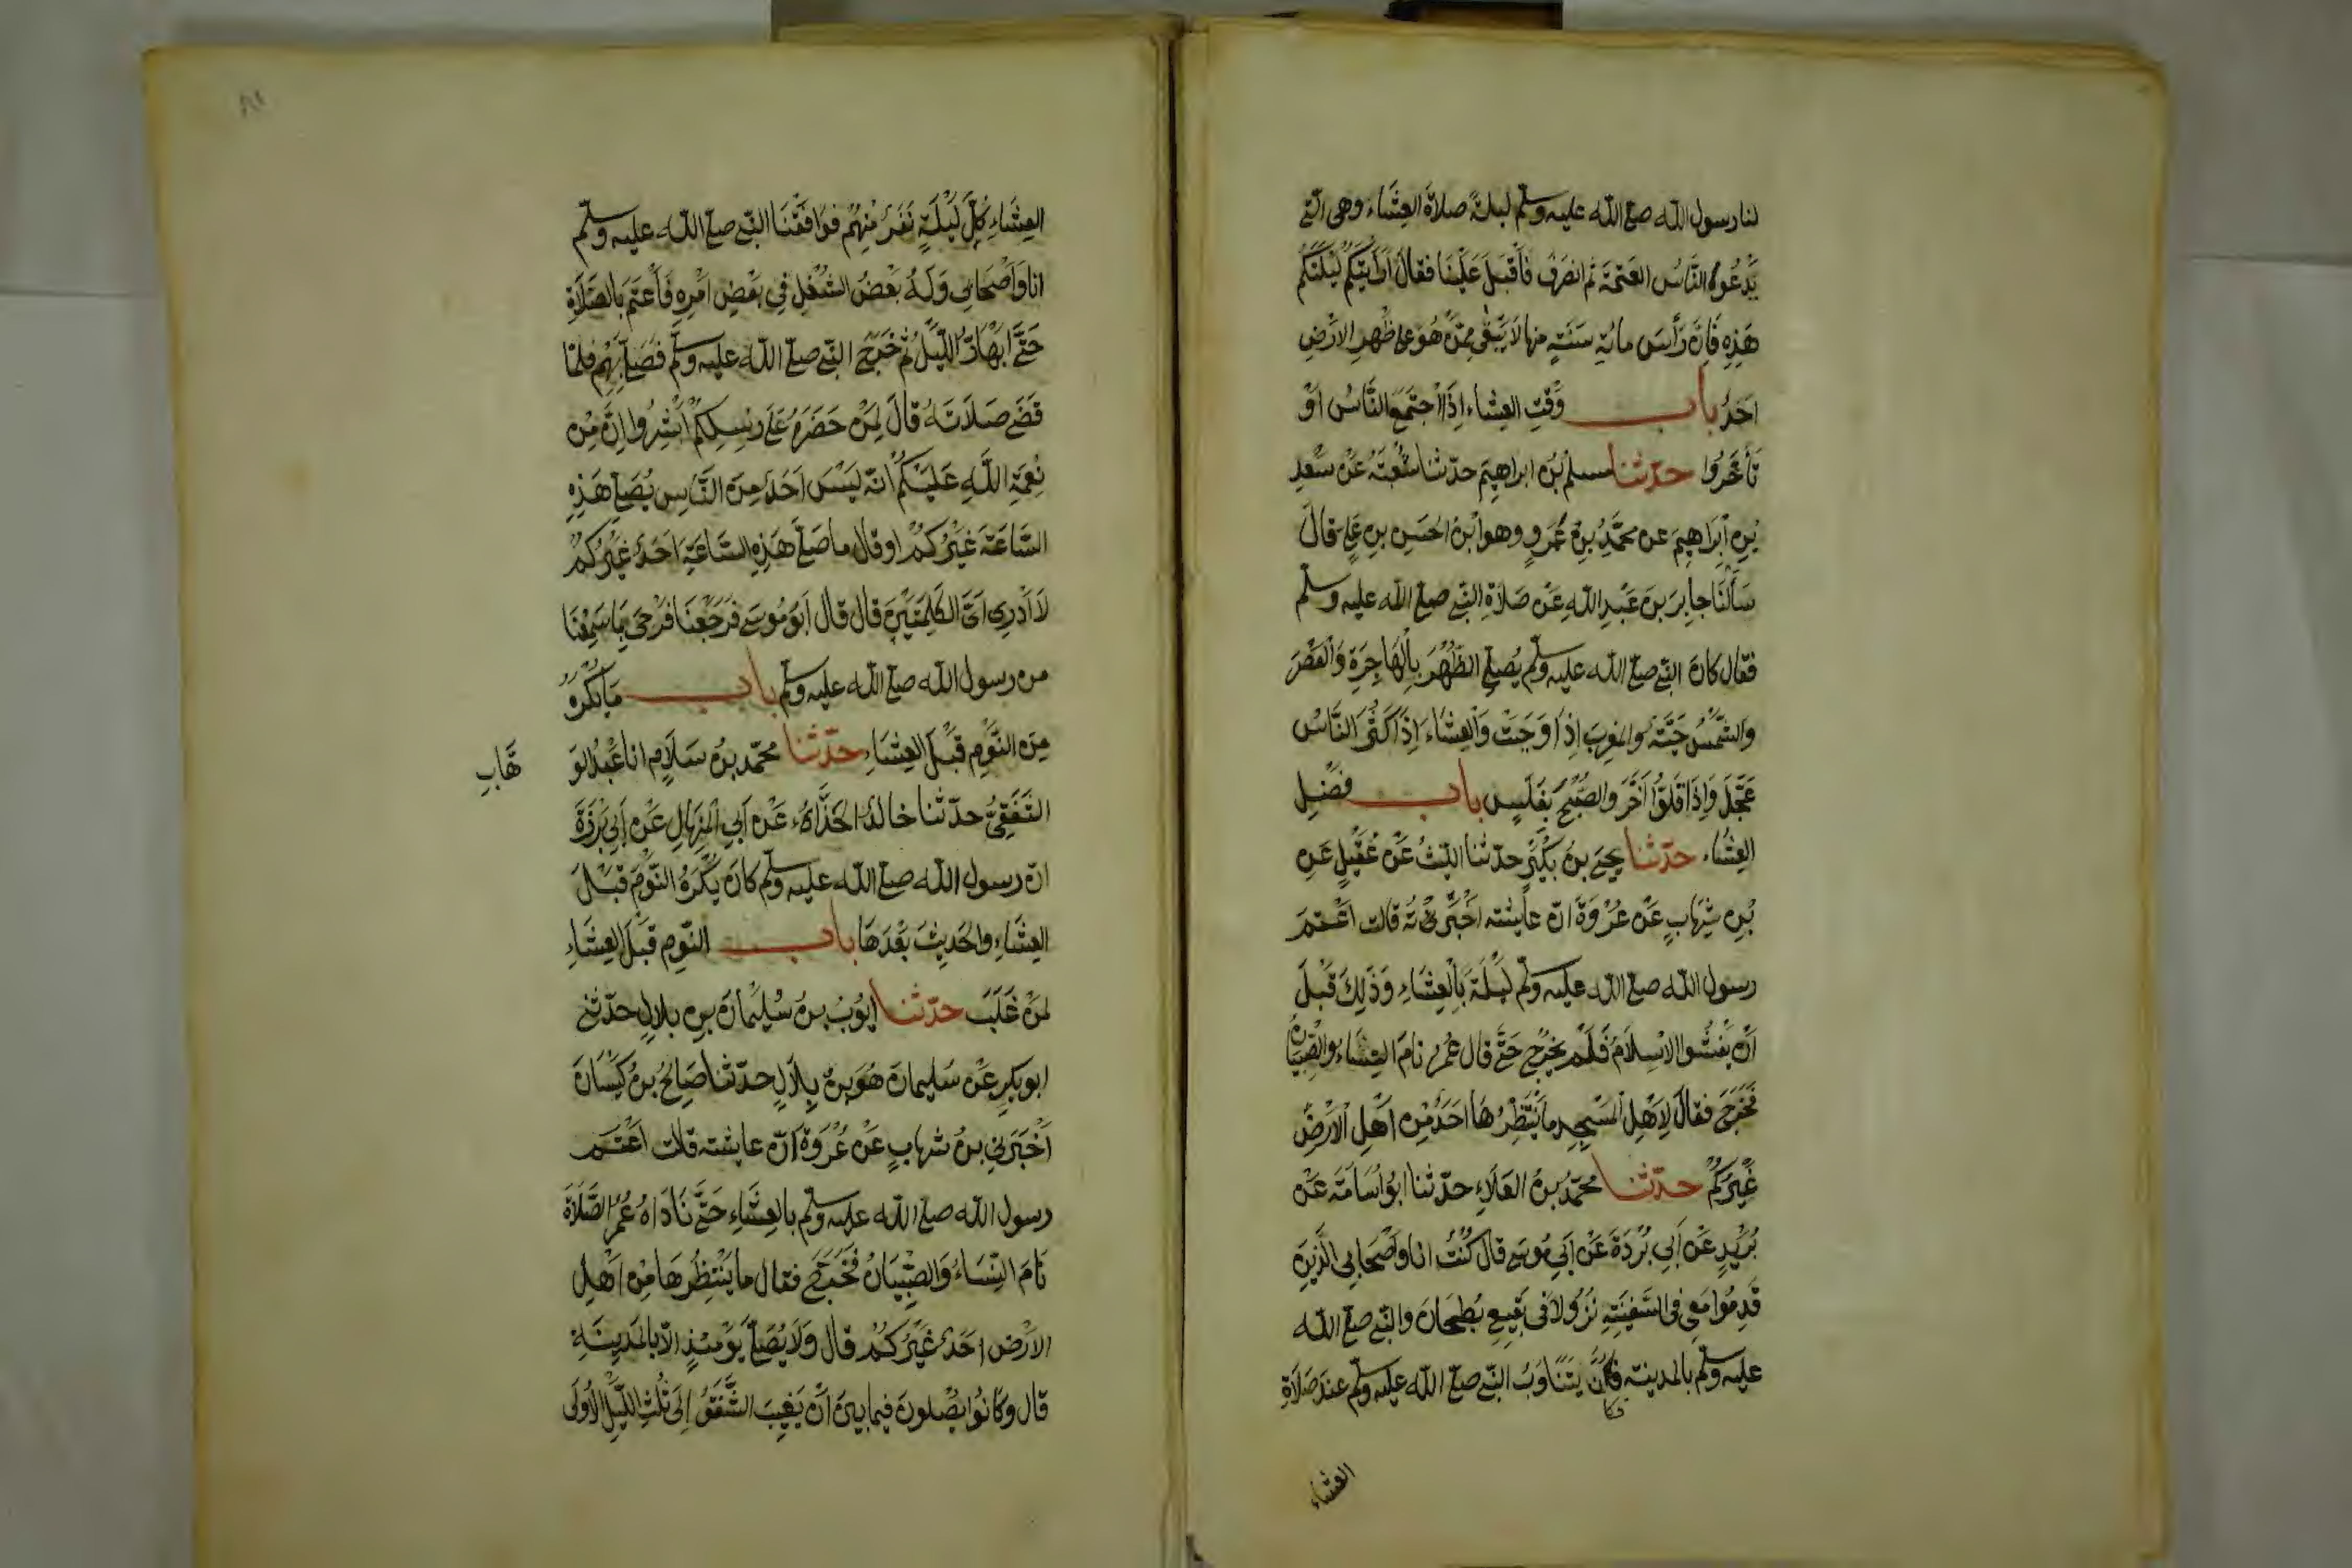 لنا رسول الله صلى الله عليه وسلم ليلة صلاة العِشَاء وهى التى
يَدْعُوا النَّاسُ العَتَمَةَ ثم انصَرَفَ فَأَقْبَلَ عَلَيْنَا فقال أَرَأَيْتَكُم لَيْلَتَكُم
هَذِهِ فَإِنَّ رَأْسَ مائة سَنَةٍ منها لَا يَبْقَى مِمَّنْ هُوَ على ظَهْرِ الارْضِ
احَدٌ باب وَقْتِ العِشَاء إِذَا اجْتَمَعَ النَّاسُ اوْ
تَأَخَّرُوا حدّثنا مسلم بْنُ ابراهيم حدّثنا شُعْبَةُ عَنْ سَعْدِ
بْنِ ابْرَاهِيمَ عن محمَّدِ بْنِ عَمْرٍو وهو ابْنُ الحَسَنِ بنِ عَلِى قالَ
سَأَلْنَا جَابِرَ بنَ عَبْدِ الله عَنْ صَلَاةِ النَّبِى صلى الله عليه وسلم
فقال كانَ النَّبى صلى الله عليه وسلم يُصَلِّى الظُّهْرَ بِالْهَاجِرَةِ وَالْعَصْرَ
وَالشَّمْسُ حَيَّةٌ وَالمَغرِبَ إِذَا وَجَبَتْ وَالعِشَاءَ إِذَا كَثُرَ النَّاسُ
عَجَّلَ وَاِذَا قَلُّوا أَخَّرَ وَالصُّبْحَ بِغَلَسٍ باب فَضْلِ
العِشَاء حدّثنا يحيى بنُ بُكَيْرٍ حدّثنا اللَّيثُ عَنْ عُقَيْلٍ عَنِ
بْنِ شِهَابٍ عَنْ عُرْوَةَ انّ عَايشه اخْبَرَتْهُ قالت اعْتَمَ
رسول الله صلى الله عليه وسلم لَيْلَةً بِالْعِشَاءِ وَذَلِكَ قَبْلَ
أَنْ يَفْشُوا الاسْلَامُ فَلَمْ يَخْرُجْ حَتَّى قال عُمَرُ نامَ النساء والصِّبْيَانُ
فَخَرَجَ فقال لِاَهْلِ المَسْجِدِ ما يَنْتَظِرُهَا احَدٌ مِنْ اَهْلِ الاَرْضِ
غَيْرُكُمْ حدّثنا محمّدُ بنُ العَلَاءِ حدّثنا ابُو اُسَامَةَ عَنْ
بُرَيْدٍ عَنْ أَبِى بُرْدَةَ عَنْ اَبِى مُوسَى قال كُنْتُ انا وَاصْحَابِى الَّذِينَ
قَدِمُوا مَعِى فى السَّفِينَةِ نُزُولًا فى بَقِيعِ بُطْحَانَ والنَّبى صلى الله
عليه وسلم بالمدينة فَكَانَ يَتَنَاوَبُ النَّبى صلى الله عليه وسلم عند صَلَاةِ
فكا
العشاء
العِشَاءِ كُلَّ لَيْلَةٍ نَفَرٌ مِنْهُمْ فوَافَقْنَا النَّبى صلى الله عليه وسلم
انا وَاَصْحَابى وَلَهُ بَعْضُ الشُّغْلِ فِى بَعْضِ امْرِهِ فَأَعْتَمَ بِالصَّلَاةِ
حَتَّى ابْهَارَّ اللَّيْلُ ثُمَّ خَرَجَ النَّبى صلى الله عليه وسلم فَصَلَّى بِهِمْ فلمّا
قَضَى صَلَاتَهُ قالَ لِمَنْ حَضَرَهُ عَلَى رِسْلِكُمْ أَبْشِرُوا اِنَّ مِنْ
نِعْمَةِ اللَّهِ عَلَيْكُمْ انّه لَيْسَ اَحَدٌ مِنَ النَّاسِ يُصَلِّى هَذِهِ
السَّاعَةَ غَيْرُكُمْ او قال ما صَلَّى هَذِهِ السَّاعَةِ اَحَدٌ غَيْرُكُمْ
لَا اَدْرِى اىَّ الكَلِمَتَيْنِ قال قال أبو مُوسَى فَرَجَعْنَا فَرْحَى بِمَا سَمِعْنَا
من رسول الله صلى الله عليه وسلم باب مَا يُكْرَهُ
مِنَ النَّوْمِ قَبْلَ العِشَاءِ حدّثنا محمّد بنُ سَلَامٍ انا عَبْدُ الوَ
هَّابِ
الثَّقَفِىُّ حدّثنا خالدٌ الحَذَّاءُ عَنْ أَبِى المِنْهَالِ عَنْ أَبِى بَرْزَةَ
انّ رسول الله صلى الله عليه وسلم كانَ يَكْرَهُ النَّوْمَ قَبْلَ
العِشَاءِ والحَدِيثَ بَعْدَهَا باب النَّوْمِ قَبْلَ العِشَاءِ
لِمَنْ غَلَبَ حدّثنا ايّوُبُ بنُ سُلَيْمَانَ بنِ بلالٍ حدّثنى
ابو بكرٍ عَنْ سُلَيمانَ هُوَ بنُ بِلَالٍ حدّثنا صَالِحُ بنُ كَيْسَانَ
اَخْبَرَنِى بنُ شِهَابٍ عَنْ عُرْوَةَ أَنّ عايشه قالت اَعْتَمَ
رسول الله صلى الله عليه وسلم بالعِشَاءِ حَتَّى نَادَاهُ عُمَرُ الصَّلَاةَ
نَامَ النِّسَاءُ وَالصِّبْيَانُ فَخَرَجَ فقال ما يَنْتَظِرُهَا مِنْ اَهْلِ
الاَرْضِ احَدٌ غَيْرُكُمْ قال وَلَا يُصَلَّى يَوْمَئِذٍ الّا بالمَدِينَةِ
قال وَكَانُوا يُصَلّونَ فِيمَا بينَ أَنْ يَغِيبَ الشَّفَقُ إِلَى ثُلُثِ اللَّيْلِ الاُولَى